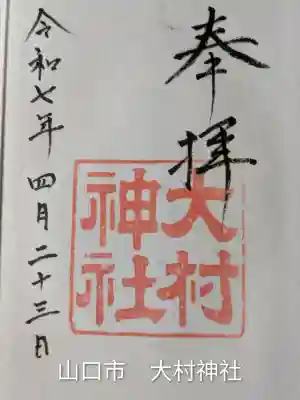 奉拝
大村
神社
令和七年 四月二十三日
山口市　大村神社